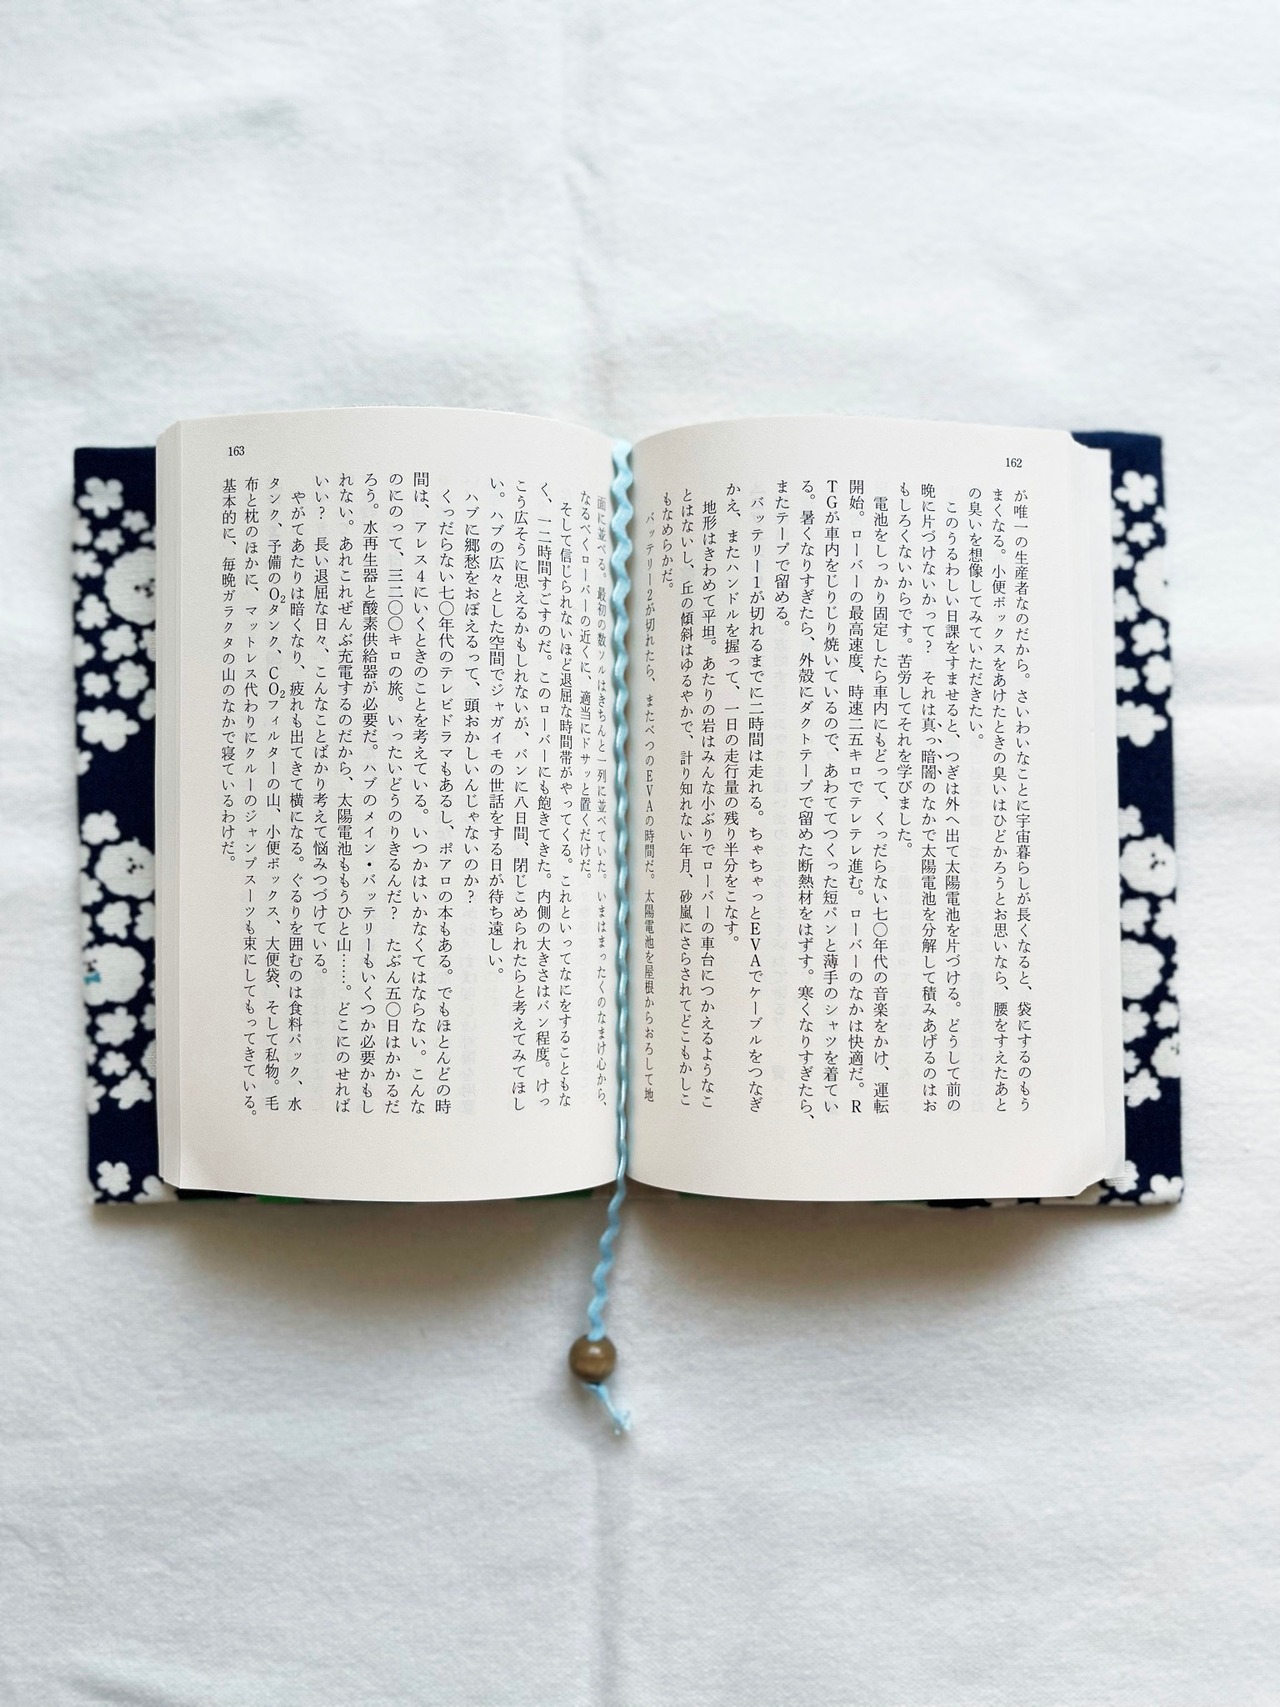 162
が唯一の生産者なのだから。さいわいなことに宇宙暮らしが長くなると、袋にするのもう
まくなる。小便ボックスをあけたときの臭いはひどかろうとお思いなら、腰をすえたあと
の臭いを想像してみていただきたい。
このうるわしい日課をすませると、つぎは外へ出て太陽電池を片づける。どうして前の
晩に片づけないかって？　それは真っ暗闇のなかで太陽電池を分解して積みあげるのはお
もしろくないからです。苦労してそれを学びました。
電池をしっかり固定したら車内にもどって、くっだらない七〇年代の音楽をかけ、運転
開始。ローバーの最高速度、時速二五キロでテレテレ進む。ローバーのなかは快適だ。R
TGが車内をじりじり焼いているので、あわててつくった短パンと薄手のシャツを着てい
る。暑くなりすぎたら、外殻にダクトテープで留めた断熱材をはずす。寒くなりすぎたら、
またテープで留める。
バッテリー1が切れるまでに二時間は走れる。ちゃちゃっとEVAでケーブルをつなぎ
かえ、またハンドルを握って、一日の走行量の残り半分をこなす。
地形はきわめて平坦。あたりの岩はみんな小ぶりでローバーの車台につかえるようなこ
とはないし、丘の傾斜はゆるやかで、計り知れない年月、砂嵐にさらされてどこもかしこ
もなめらかだ。
バッテリー2が切れたら、またべつのEVAの時間だ。太陽電池を屋根からおろして地
163
面に並べる。最初の数ソルはきちんと一列に並べていた。いまはまったくのなまけ心から、
なるべくローバーの近くに、適当にドサッと置くだけだ。
そして信じられないほど退屈な時間帯がやってくる。これといってなにをすることもな
く、一二時間すごすのだ。このローバーにも飽きてきた。内側の大きさはバン程度。けっ
こう広そうに思えるかもしれないが、バンに八日間、閉じこめられたらと考えてみてほし
い。ハブの広々とした空間でジャガイモの世話をする日が待ち遠しい。
ハブに郷愁をおぼえるって、頭おかしいんじゃないのか？
くっだらない七〇年代のテレビドラマもあるし、ポアロの本もある。でもほとんどの時
間は、アレス4にいくときのことを考えている。いつかはいかなくてはならない。こんな
のにのって、三二〇〇キロの旅。いったいどうのりきるんだ？　たぶん五〇日はかかるだ
ろう。水再生器と酸素供給器が必要だ。ハブのメイン・バッテリーもいくつか必要かもし
れない。あれこれぜんぶ充電するのだから、太陽電池ももうひと山……。どこにのせれば
いい？　長い退屈な日々、こんなことばかり考えて悩みつづけている。
やがてあたりは暗くなり、疲れも出てきて横になる。ぐるりを囲むのは食料パック、水
タンク、予備のO2タンク、CO2フィルターの山、小便ボックス、大便袋、そして私物。毛
布と枕のほかに、マットレス代わりにクルーのジャンプスーツも束にしてもってきている。
基本的に、毎晩ガラクタの山のなかで寝ているわけだ。